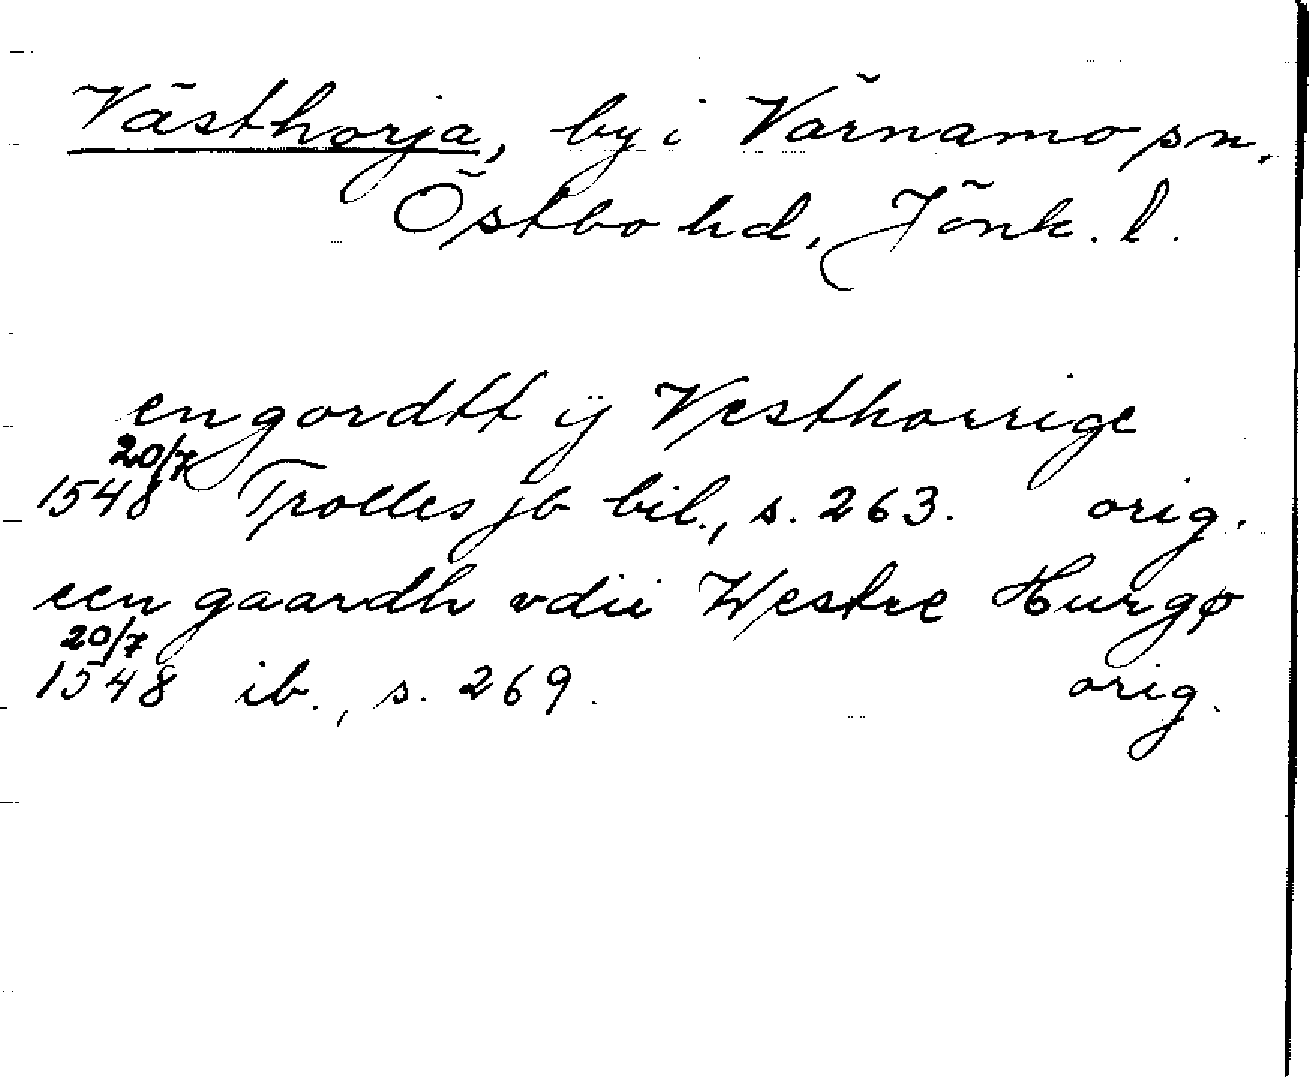 Västhorja, by i Värnamo sn,
Östbo hd, Jönk. l.
en gordtt ij Vesthorrige
20/7
1548 Trolles jb bil., s. 263. orig.
een gaardh vdii Westre Hurgø
20/7
1548 ib., s. 269. orig.